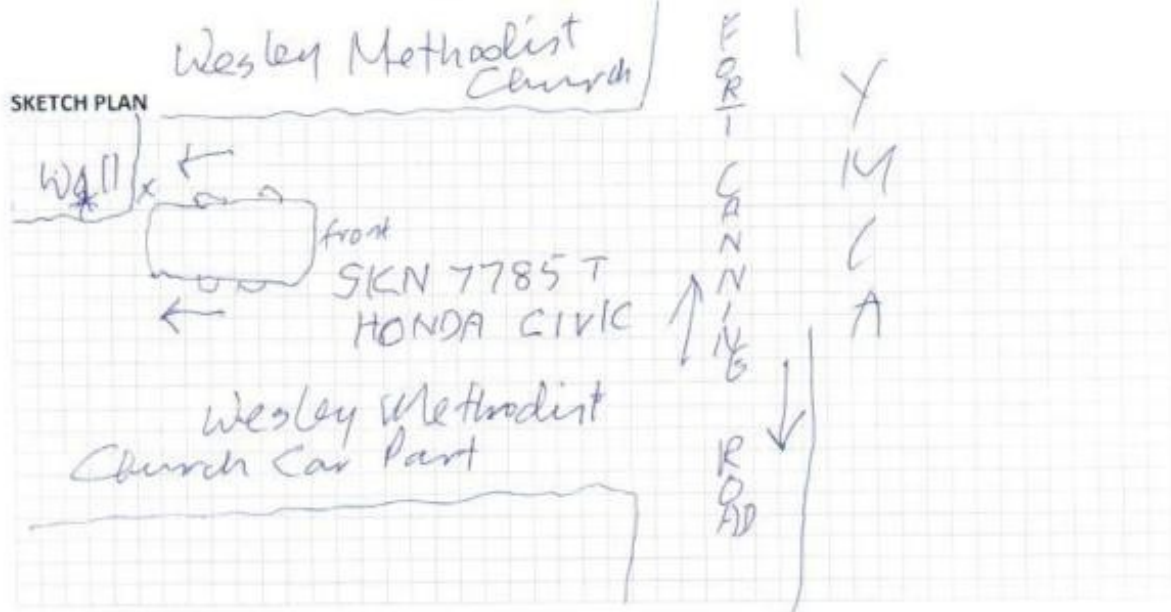 Wesley Methodist
Church
SKETCH PLAN
Wall
x
front
SKN 7785 T
HONDA CIVIC
Wesley Methodist
Church Car Part
FORT CANNING ROAD
YMCA